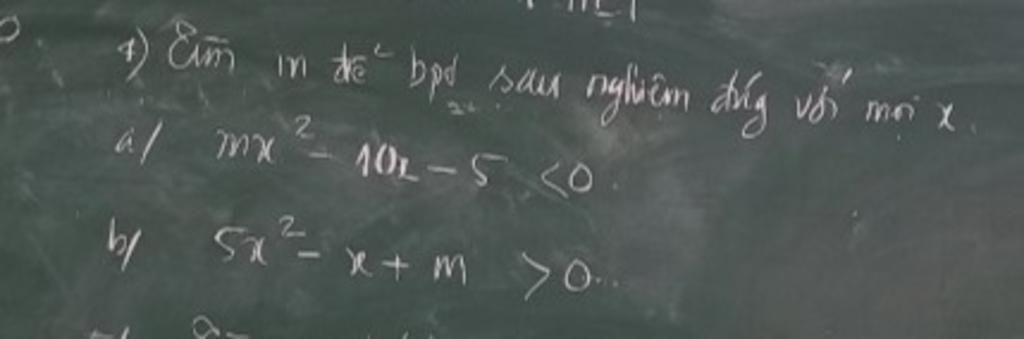 1) Tìm m để bpt sau nghiệm đúng với mọi x.
a/ mx² - 10x - 5 < 0.
b/ 5x² - x + m > 0...